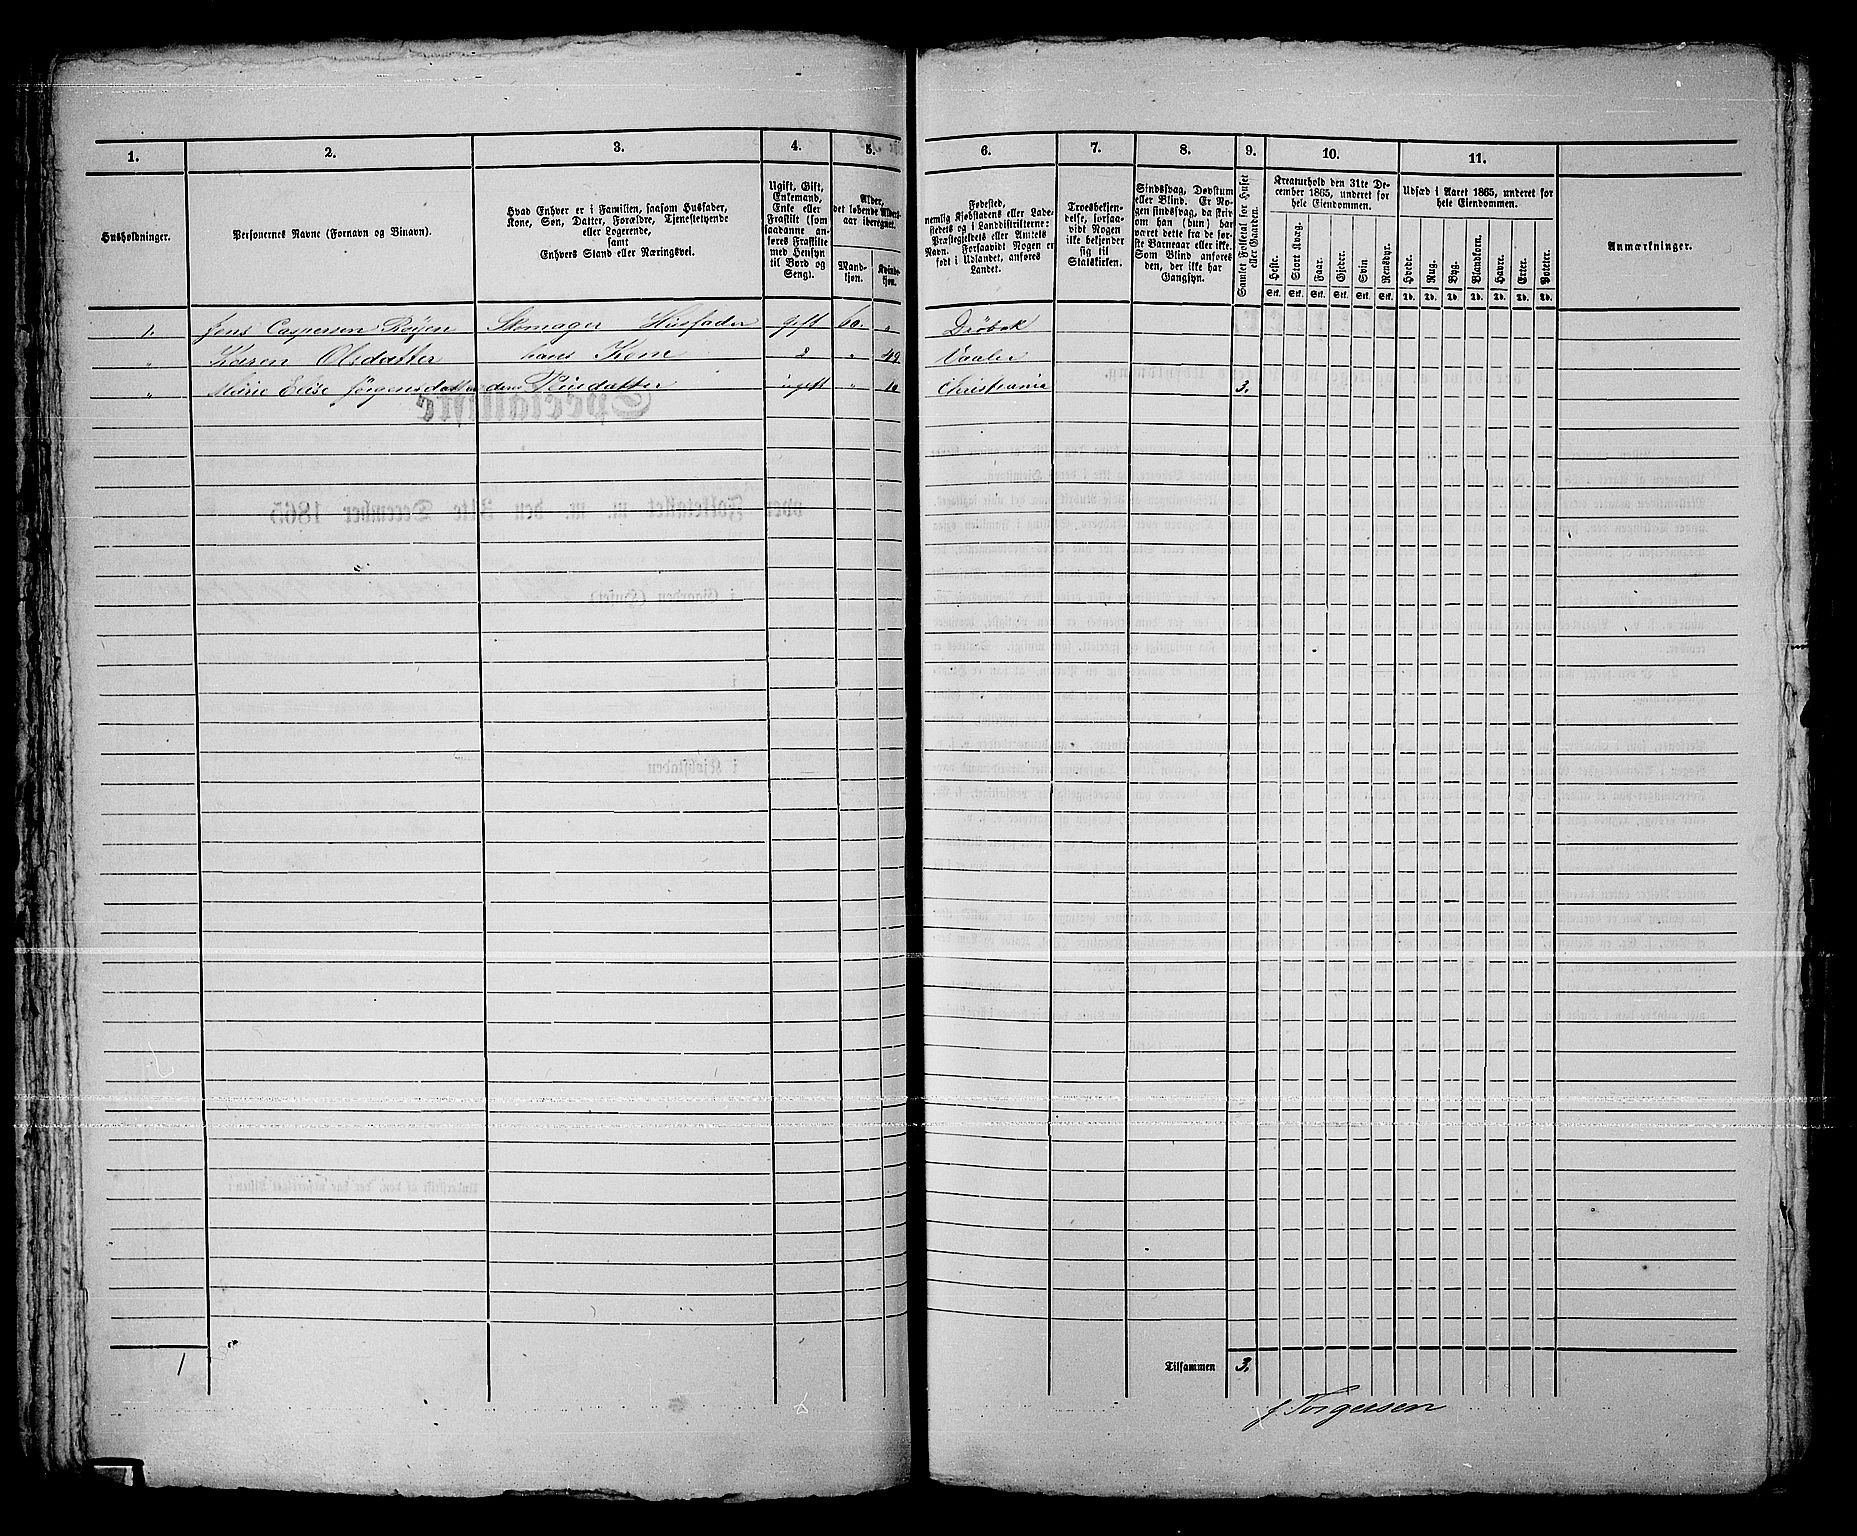 1.
2.
3.
4.
5.
6.
7.
8.
9.
10.
11.
Husholdninger.
Personernes Navne (Fornavn og Binavn).
Hvad Enhver er i Familien, saasom Husfader,
Kone, Søn, Datter, Forældre, Tjenestetyende
eller Logerende,
samt
Enhvers Stand eller Næringsvei.
Ugift, Gift,
Enkemand,
Enke eller
Fraskilt (som
saadanne an-
føres Fraskilte
med Hensyn
til Bord og
Seng).
Alder,
det løbende Alders-
aar iberegnet.
Mand-
kjøn.
Kvinde-
kjøn.
Fødested,
nemlig Kjøbstadens eller Lade-
stedets og i Landdistrikterne:
Præstegjeldets eller Amtets
Navn. Forsaavidt Nogen er
født i Udlandet, anføres
Landet.
Troesbekjen-
delse, forsaa-
vidt Nogen
ikke bekjender
sig til
Statskirken.
Sindssvag, Døvstum
eller Blind. Er No-
gen sindssvag, da skriv
om han (hun) har
været dette fra de før-
ste Barneaar eller ikke.
Som Blind anføres
den, der ikke har
Gangsyn.
Samlet Folketal for Huset
eller Gaarden.
Kreaturhold den 31te De-
cember 1865, underet for
hele Eiendommen.
Heste.
Stort Kvæg.
Faar.
Gjeder.
Svin
Rensdyr.
Stk. Stk. Stk. Stk. Stk. Stk.
Udsæd i Aaret 1865, underet for
hele Eiendommen.
Hvede.
Rug.
Byg.
Blandkorn.
Havre.
Erter.
Poteter.
Td. Td. Td. Td. Td. Td. Td.
Anmærkninger.
1. Jens Caspersen Røyen Skomager Husfader gift 60. " Drøbak
" Karen Olsdatter hans Kone " 49. Vaaler
" Marie Elise Jørgensdatter deres Pleiedatter ugift " 10 Christiania 3.
1
Tilsammen 3.
J Torgersen